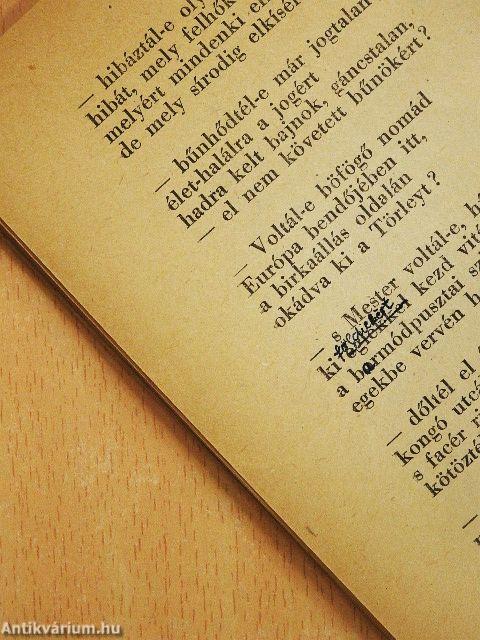 — hibáztál-e oly
hibát, mely felhők
melyért mindenki el
de mely sírodig elkísér
— bűnhődtél-e már jogtalan
élet-halálra a jogért
hadra kelt bajnok, gáncstalan,
— el nem követett bűnökért?
— Voltál-e böfögő nomád
Európa bendőjében itt,
a birkaállás oldalán
okádva ki a Törleyt?
— s Mester voltál-e, b
ki egekkel kezd vit
a barmódpusztai sz
egekbe vervén b
— dőltél el
kongó utc
s facér r
kötözt
—
Antikvárium.hu